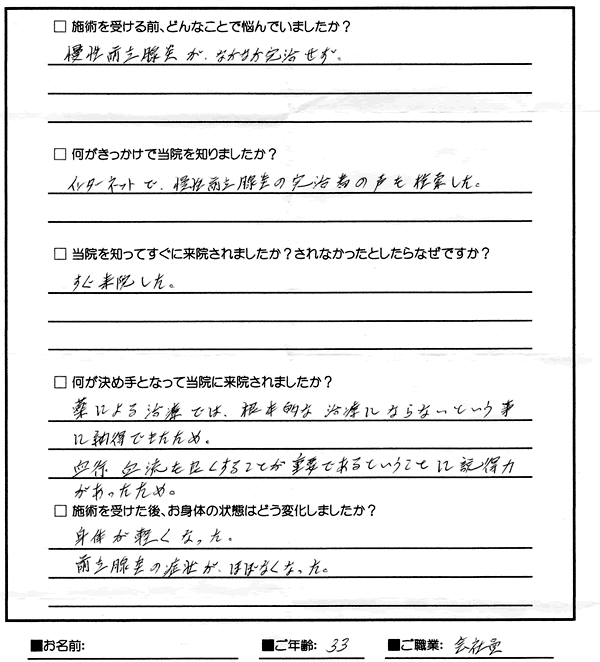 □ 施術を受ける前、どんなことで悩んでいましたか?
慢性前立腺炎が、なかなか完治せず。
□ 何がきっかけで当院を知りましたか?
インターネットで、慢性前立腺炎の完治者の声を検索した。
□ 当院を知ってすぐに来院されましたか?されなかったとしたらなぜですか?
すぐ来院した。
□ 何が決め手となって当院に来院されましたか?
薬による治療では、根本的な治療にならないという事
に納得できたため。
血液 血流を良くすることが重要であるということに説得力
があったため。
□ 施術を受けた後、お身体の状態はどう変化しましたか?
身体が軽くなった。
前立腺炎の症状が、ほぼなくなった。
■お名前: ■ご年齢: 33 ■ご職業: 会社員